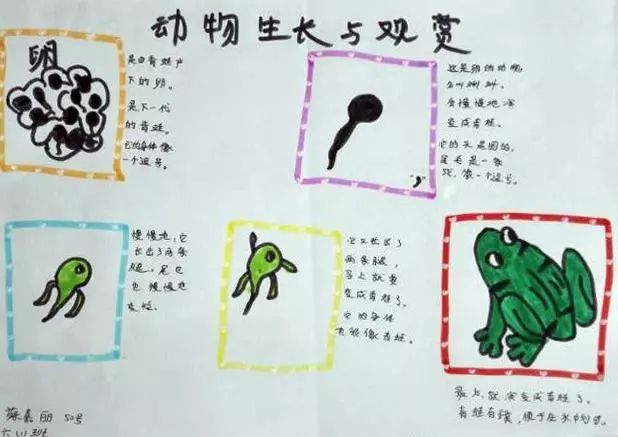 动物生长与观赏
卵
是由青蛙产
下的卵。
是下一代
的青蛙。
它的身体像
一个逗号。
这是卵的幼虫
会慢慢地演
变成青蛙。
它的头是圆的,
尾毛是一条
像一个逗号。
","
慢慢地,它
长出了两条
腿,尾巴
也慢慢地
变短。
它又长出了
两条腿,
马上就要
变成青蛙了。
它的身体
也很像青蛙。
最后,就演变成青蛙了。
青蛙有蹼,便于在水中
陈嘉丽 50号
六(1)班